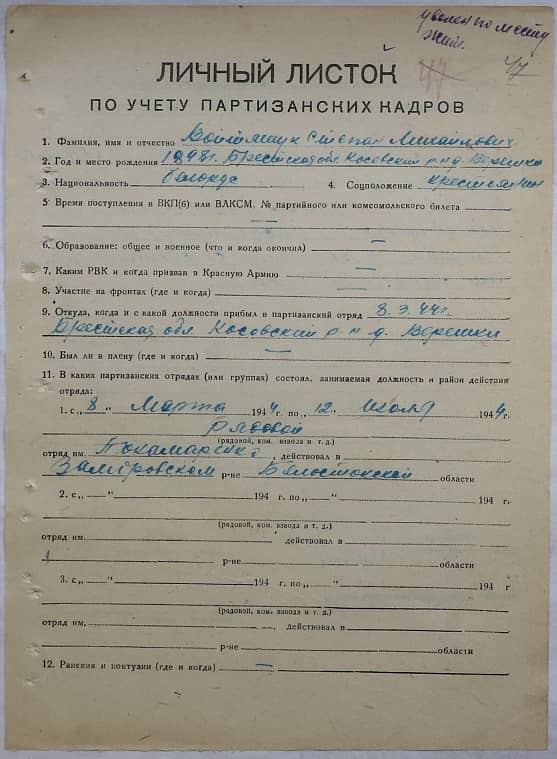 уволен по месту
жит.
47 47
ЛИЧНЫЙ ЛИСТОК
ПО УЧЕТУ ПАРТИЗАНСКИХ КАДРОВ
1. Фамилия, имя и отчество Войтящук Степан Михайлович
2. Год и место рождения 1898 г. Брестская обл. Косовский р-н д. Верешки
3. Национальность белорус 4. Соцположение крестьянин
5 Время поступления в ВКП(б) или ВЛКСМ, № партийного или комсомольского билета
—
6. Образование: общее и военное (что и когда окончил) —
7. Каким РВК и когда призван в Красную Армию —
8. Участие на фронтах (где и когда) —
9. Откуда, когда и с какой должности прибыл в партизанский отряд 8.3.44 г.
Брестская обл. Косовский р-н д. Верешки
10. Был ли в плену (где и когда) —
11. В каких партизанских отрядах (или группах) состоял, занимаемая должность и район действия
отряда:
1. с „ 8 „ Марта 1944 г. по „ 12 „ Июля 1944 г.
рядовой
(рядовой, ком. взвода и т. д.)
отряд им. действовал в
р-не Белостокской области
2. с „—“ 194 г. по „—“ 194 г.
(рядовой, ком. взвода и т. д.)
отряд им. действовал в
р-не области
3. с „—“ 194 г. по „—“ 194 г
(рядовой, ком. взвода и т. д.)
отряд им. действовал в
р-не области
12. Ранения и контузии (где и когда) —